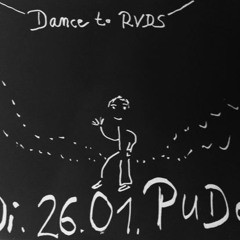 Dance to RVDS
Di. 26.01. PuDe